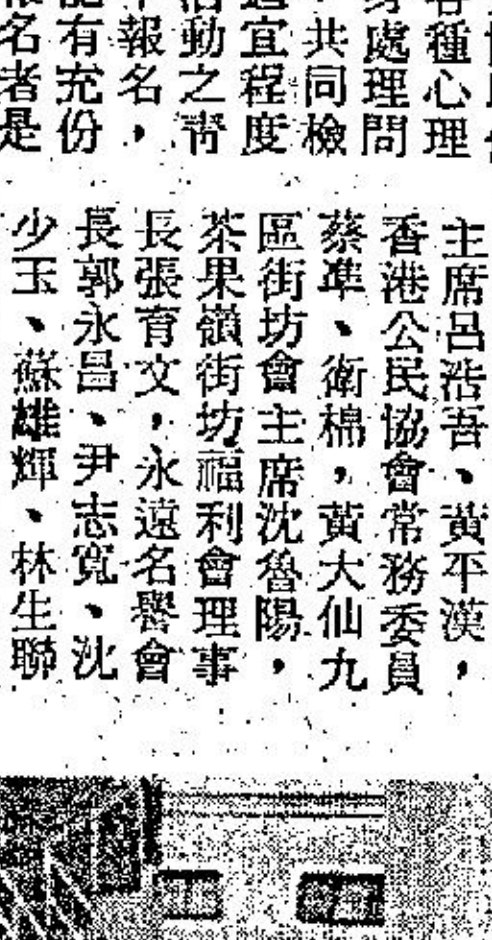 種心理
處理問
共同檢
宜程度
動之靑
報名，
有充份
名者是
主席呂浩吾、黃平漢，
香港公民協會常務委員
蔡準、衛棉，黃大仙九
區街坊會主席沈魯陽，
茶果嶺街坊福利會理事
長張育文，永遠名譽會
長郭永昌、尹志寬、沈
少玉、蘇雄輝、林生聯